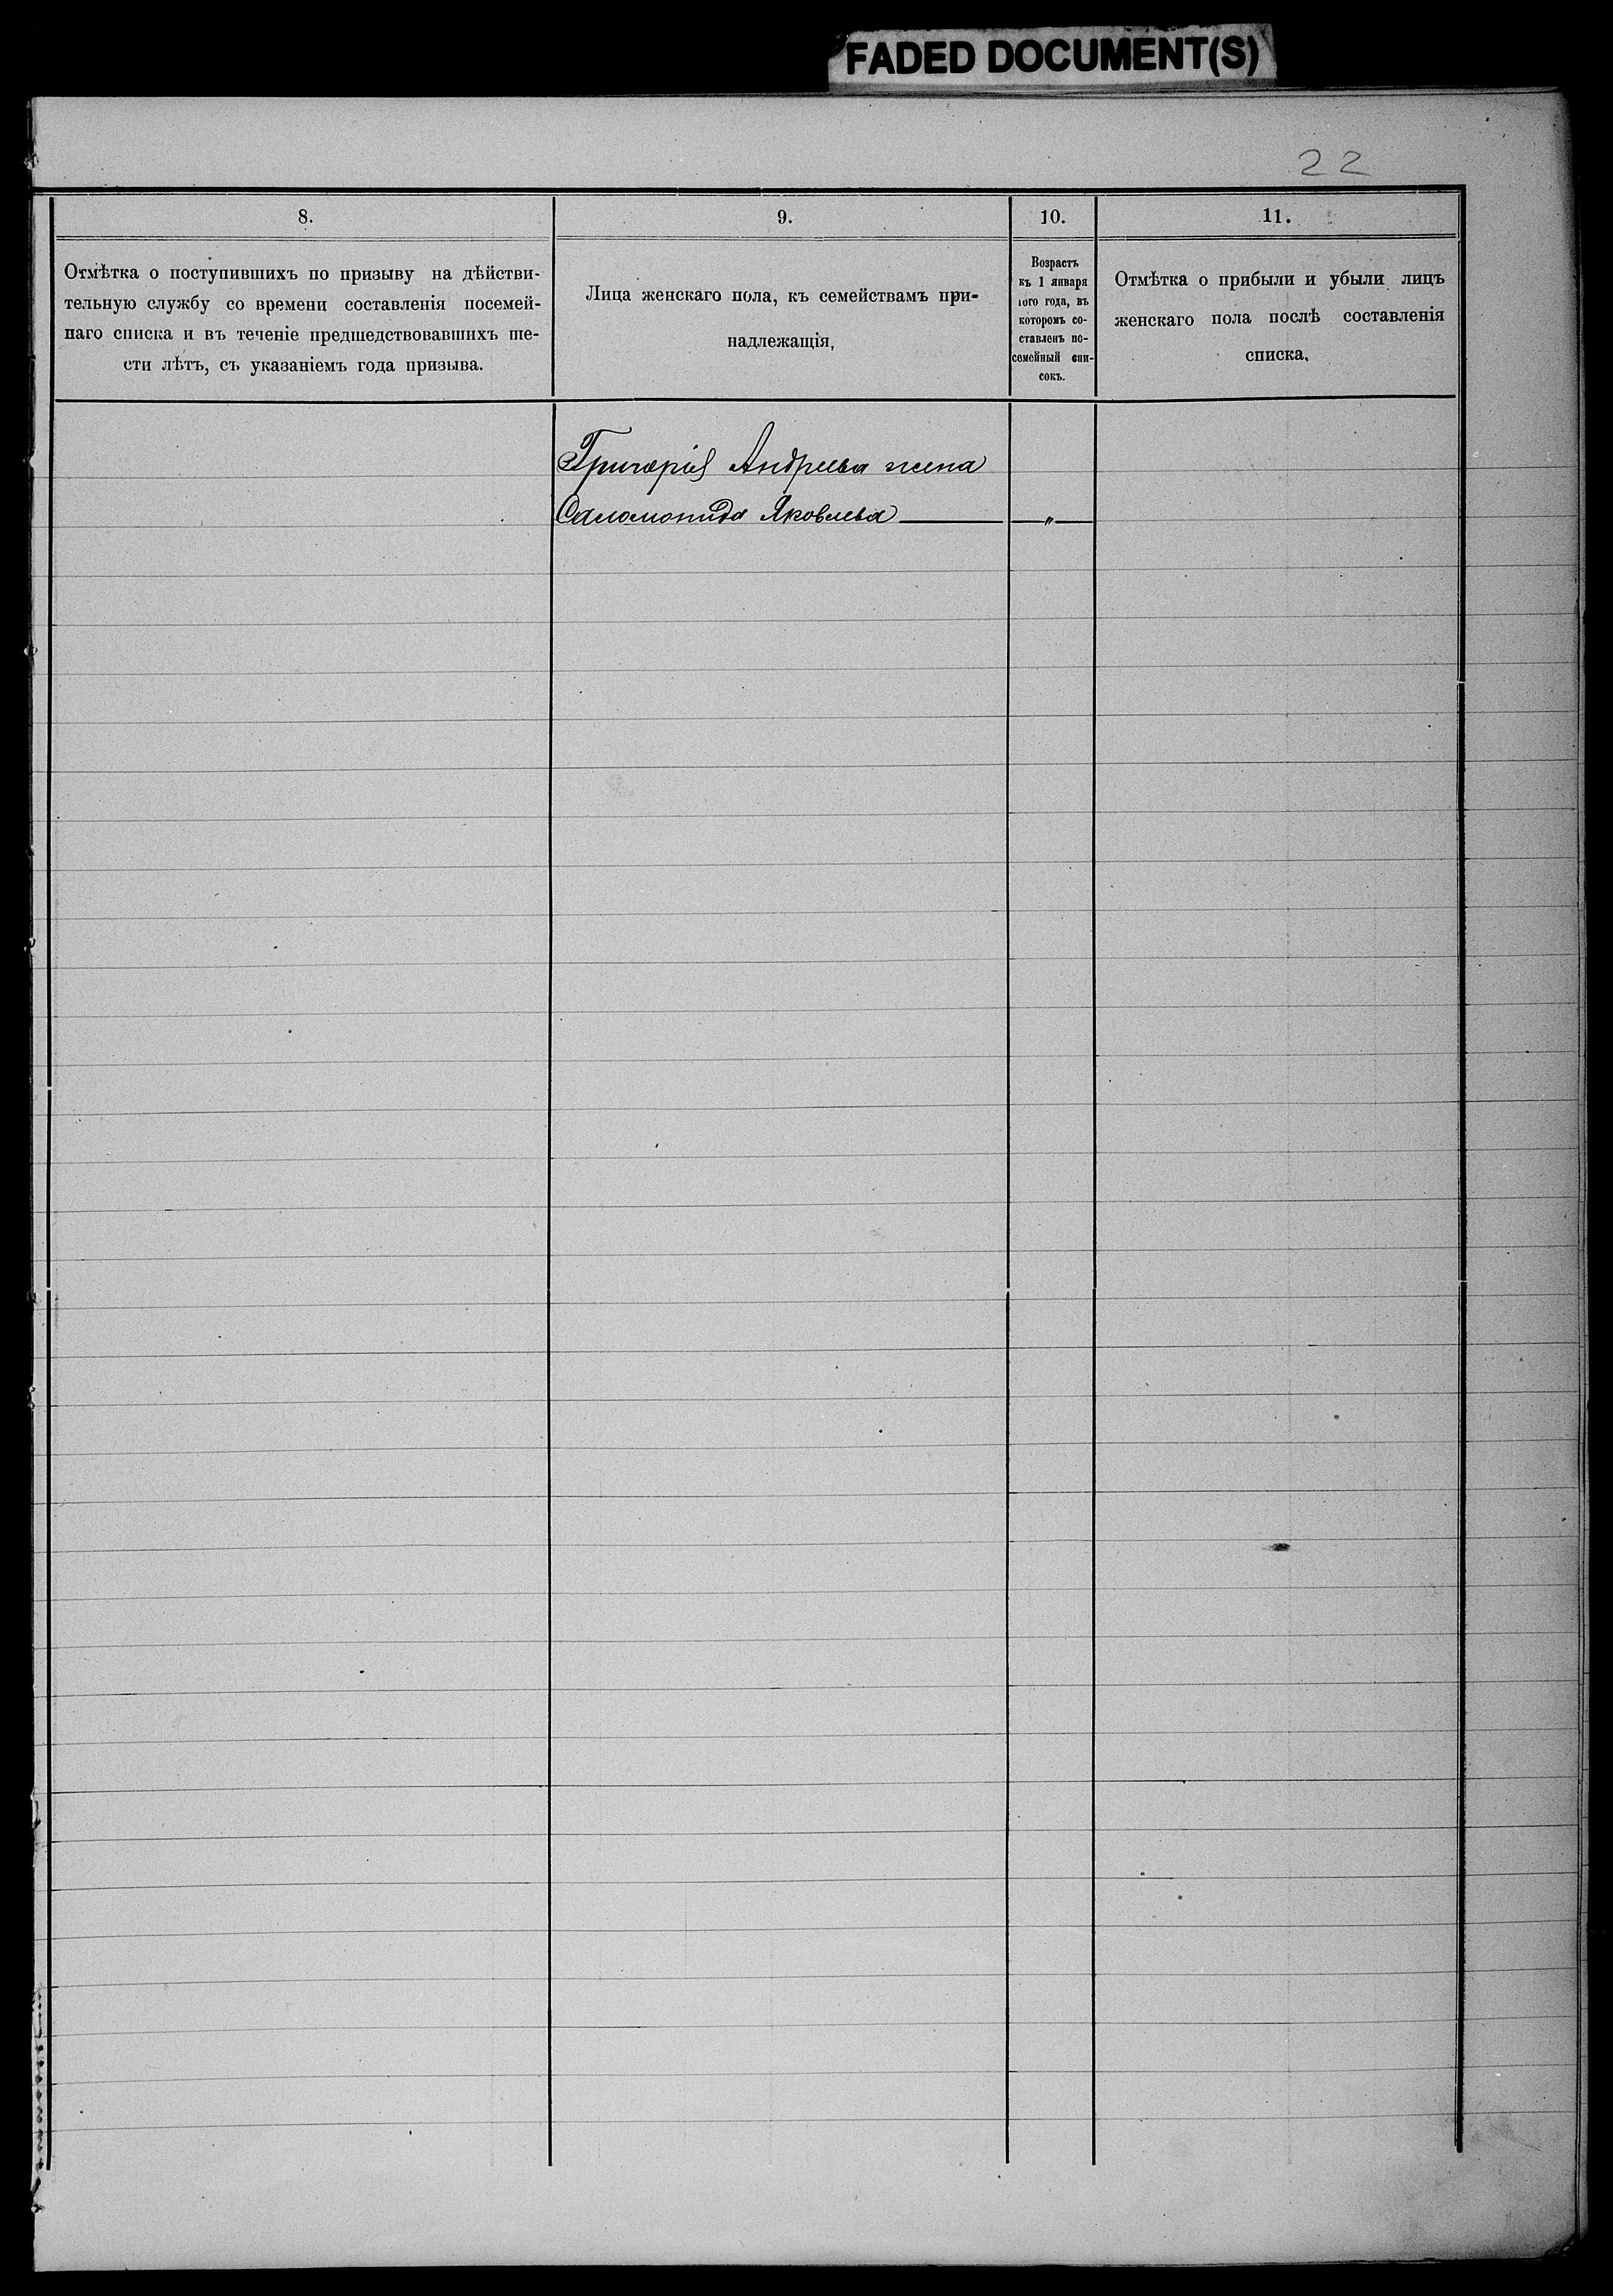 FADED DOCUMENT(S)
22
8.
9.
10.
11.
Отмѣтка о поступившихъ по призыву на дѣйстви-
тельную службу со времени составленія посемей-
наго списка и въ теченіе предшедствовавшихъ ше-
сти лѣтъ, съ указаніемъ года призыва.
Лица женскаго пола, къ семействамъ при-
надлежащія,
Возрастъ
къ 1 января
того года, въ
которомъ со-
ставленъ по-
семейный спи-
сокъ.
Отмѣтка о прибыли и убыли лицъ
женскаго пола послѣ составленія
списка,
Григорія Андреева жена
Саломонида Яковлева — „ —